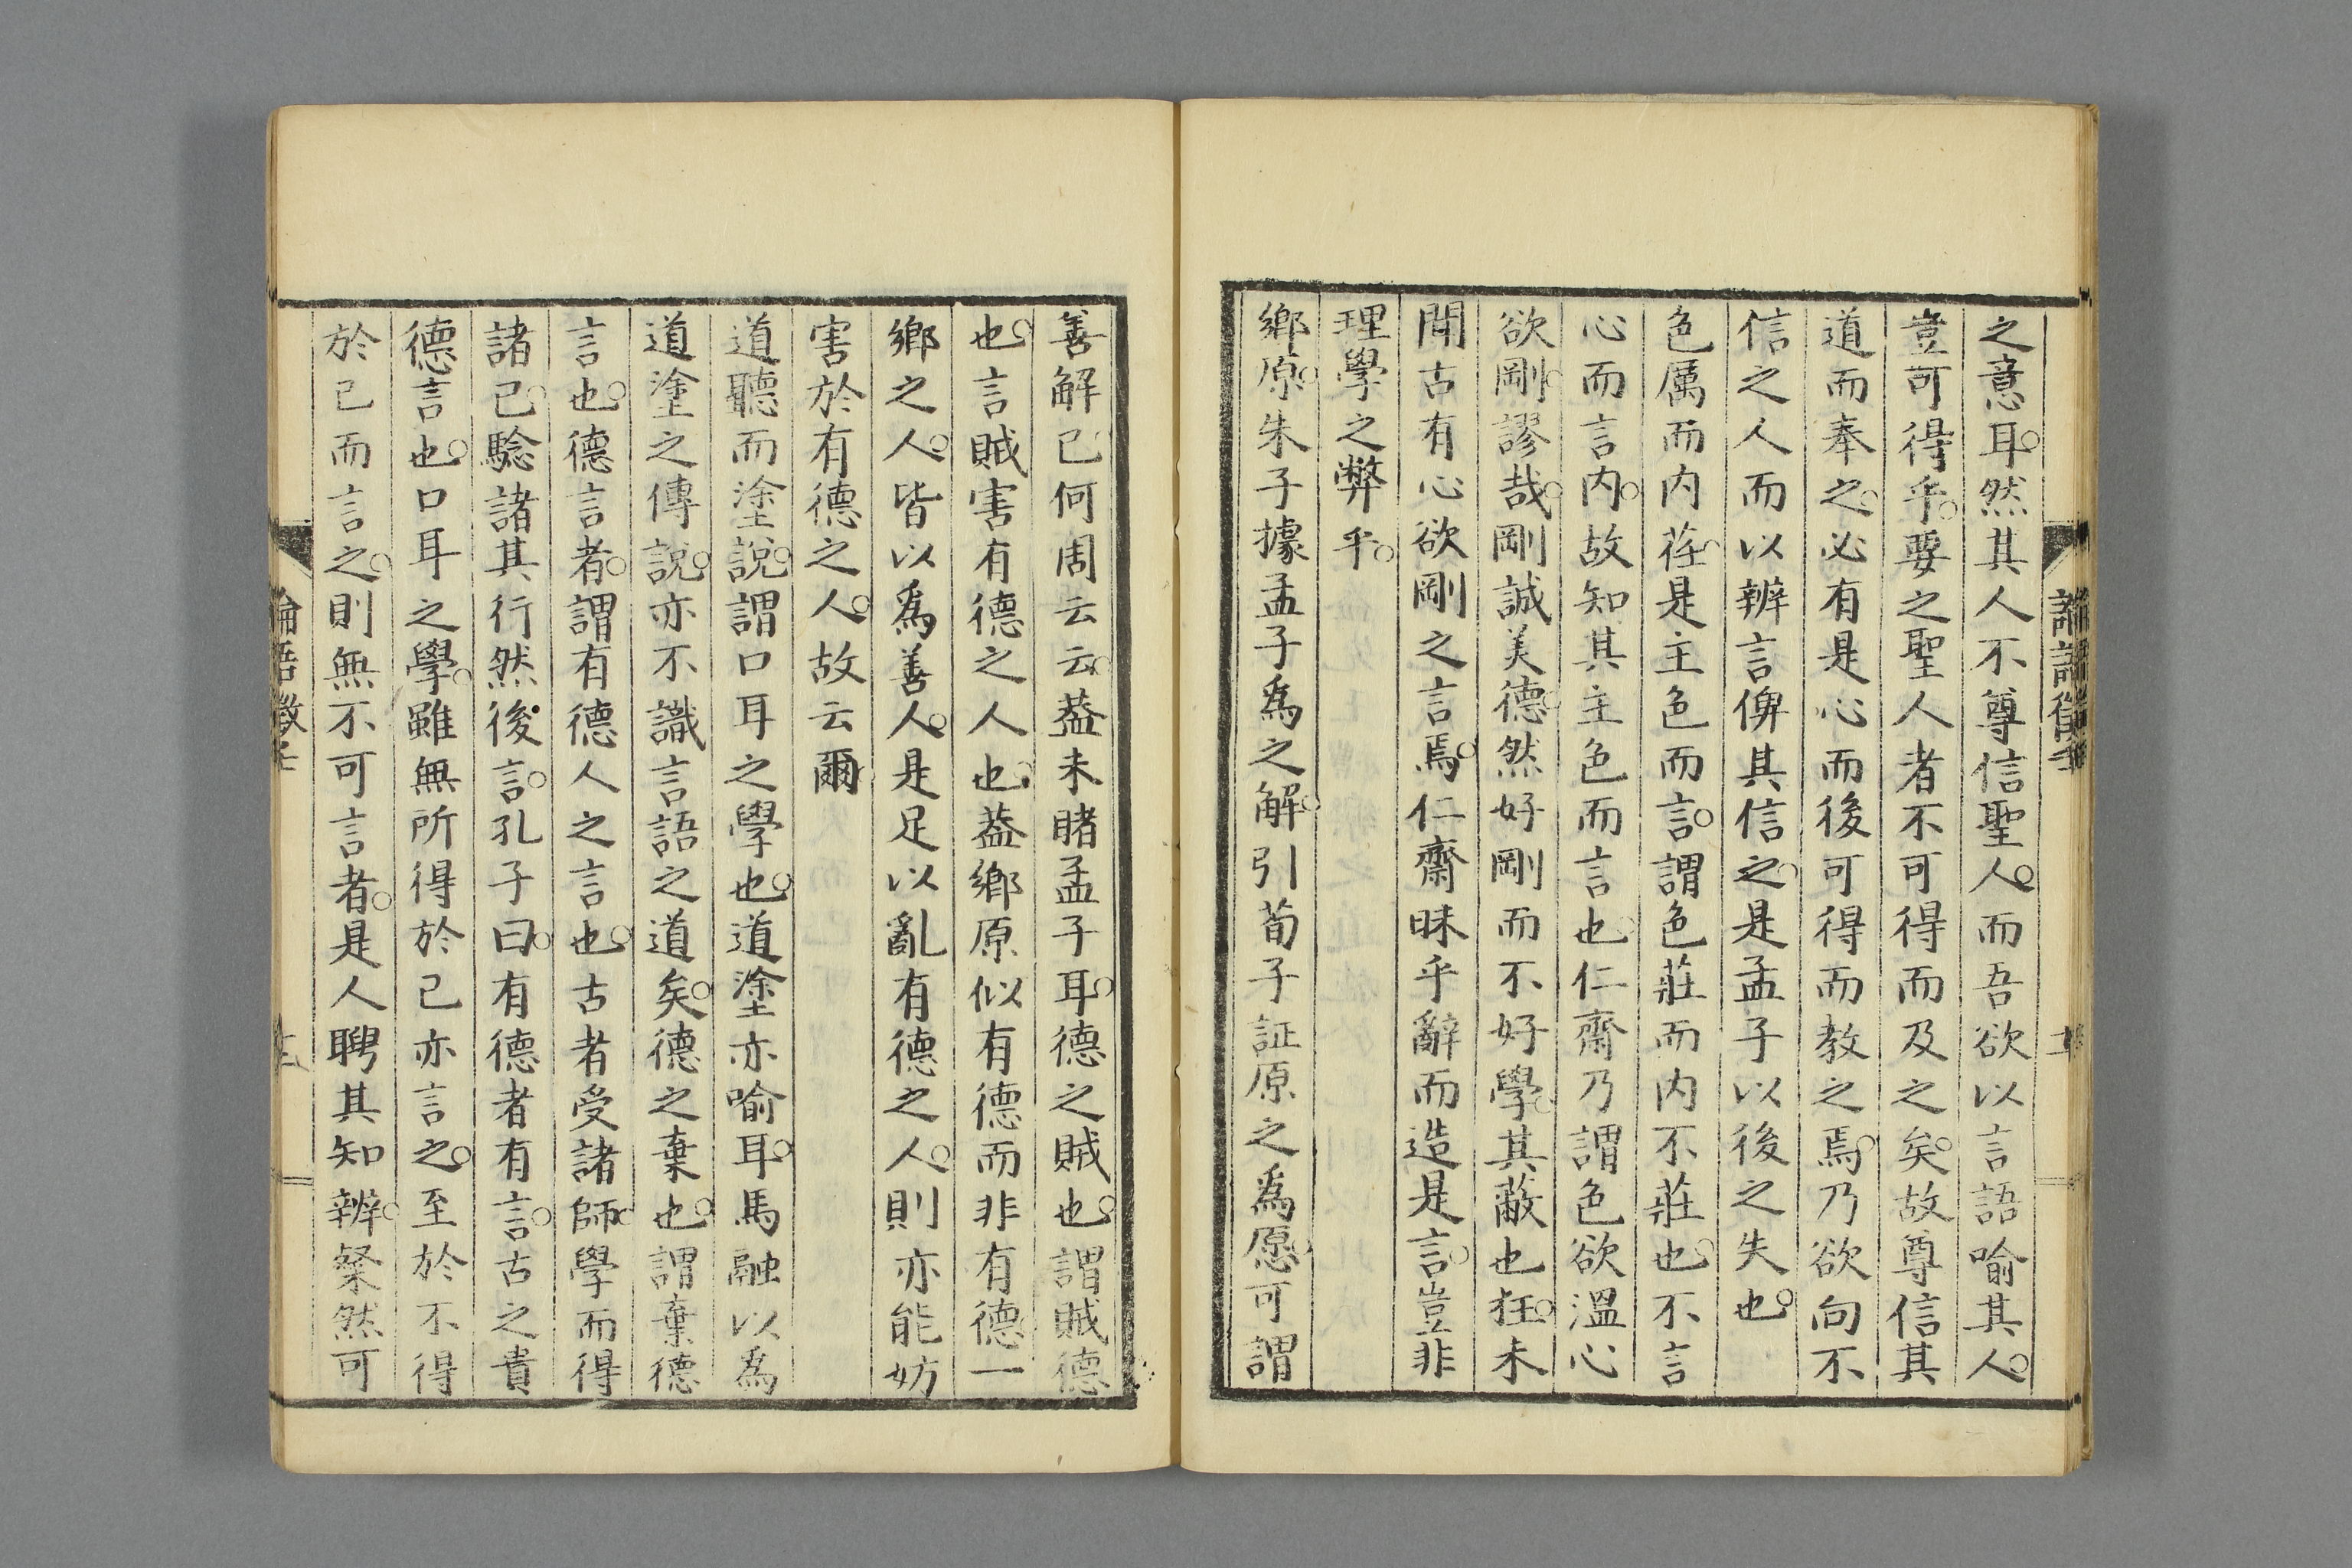 之意耳。然其人不尊信聖人。而吾欲以言語喻其人。
豈可得乎。要之聖人者不可得而及之矣。故尊信其
道而奉之。必有是心而後可得而教之焉。乃欲向不
信之人而以辨言俾其信之。是孟子以後之失也。
色厲而内荏。是主色而言。謂色莊而内不莊也。不言
心而言内。故知其主色而言也。仁齋乃謂色欲溫心
欲剛。謬哉。剛誠美德。然好剛而不好學。其蔽也狂。未
聞古有心欲剛之言焉。仁齋昧乎辭而造是言。豈非
理學之弊乎。
鄉原。朱子據孟子爲之解。引荀子証原之爲愿。可謂
善解已。何周云云。葢未睹孟子耳。德之賊也。謂賊德
也。言賊害有德之人也。葢鄉原似有德而非有德。一
鄉之人。皆以爲善人。是足以亂有德之人。則亦能妨
害於有德之人。故云爾。
道聽而塗說。謂口耳之學也。道塗亦喻耳。馬融以爲
道塗之傳說。亦不識言語之道矣。德之棄也。謂棄德
言也。德言者。謂有德人之言也。古者受諸師。學而得
諸己。驗諸其行。然後言。孔子曰。有德者有言。古之貴
德言也。口耳之學。雖無所得於己亦言之。至於不得
於己而言之。則無不可言者。是人聘其知辨。粲然可
論語徵壬